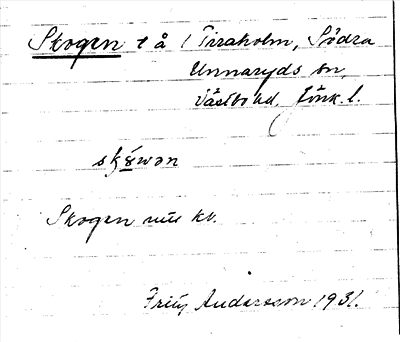 Skogen t å 1 Tiraholm, Södra
Unnaryds sn,
Västbo hd, Jönk. l.
Skogen
Fritz Andersson 1931.